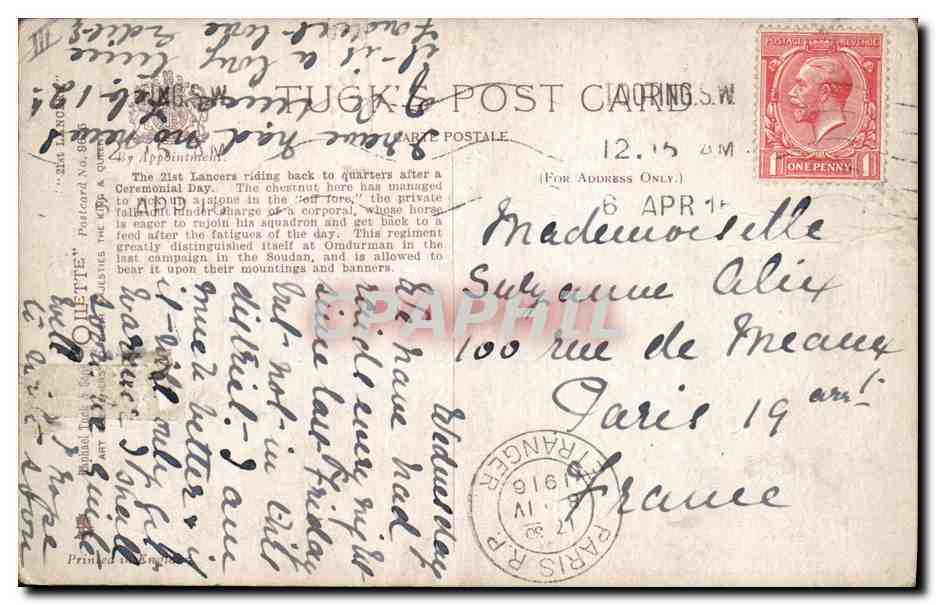 TUCK'S POST CARD
CARTE POSTALE
(FOR ADDRESS ONLY.)
By Appointment.
The 21st Lancers riding back to quarters after a
Ceremonial Day. The chestnut here has managed
to pick up a stone in the "off fore," the private
falls out under charge of a corporal, whose horse
is eager to rejoin his squadron and get back to a
feed after the fatigues of the day. This regiment
greatly distinguished itself at Omdurman in the
last campaign in the Soudan, and is allowed to
bear it upon their mountings and banners.
"21st LANCERS"
Postcard No.
MAJESTIES THE KING & QUEEN
Raphael Tuck & Sons
Printed in England
POSTAGE REVENUE
1 ONE PENNY 1
TOOTING.S.W.
12.15 AM
6 APR 16
Mademoiselle
Suzanne Alix
100 rue de Meaux
Paris 19 arrt
France
PARIS R.P. ETRANGER
17 IV
1916
Wednesday
We have had
raids every night
since last Friday
but not in this
district - I am
much better &
if it would only get
warmer I shall
be quite
well I hope
soon
I have had no news
of
it is a long time
Fondest love
CPAPHIL